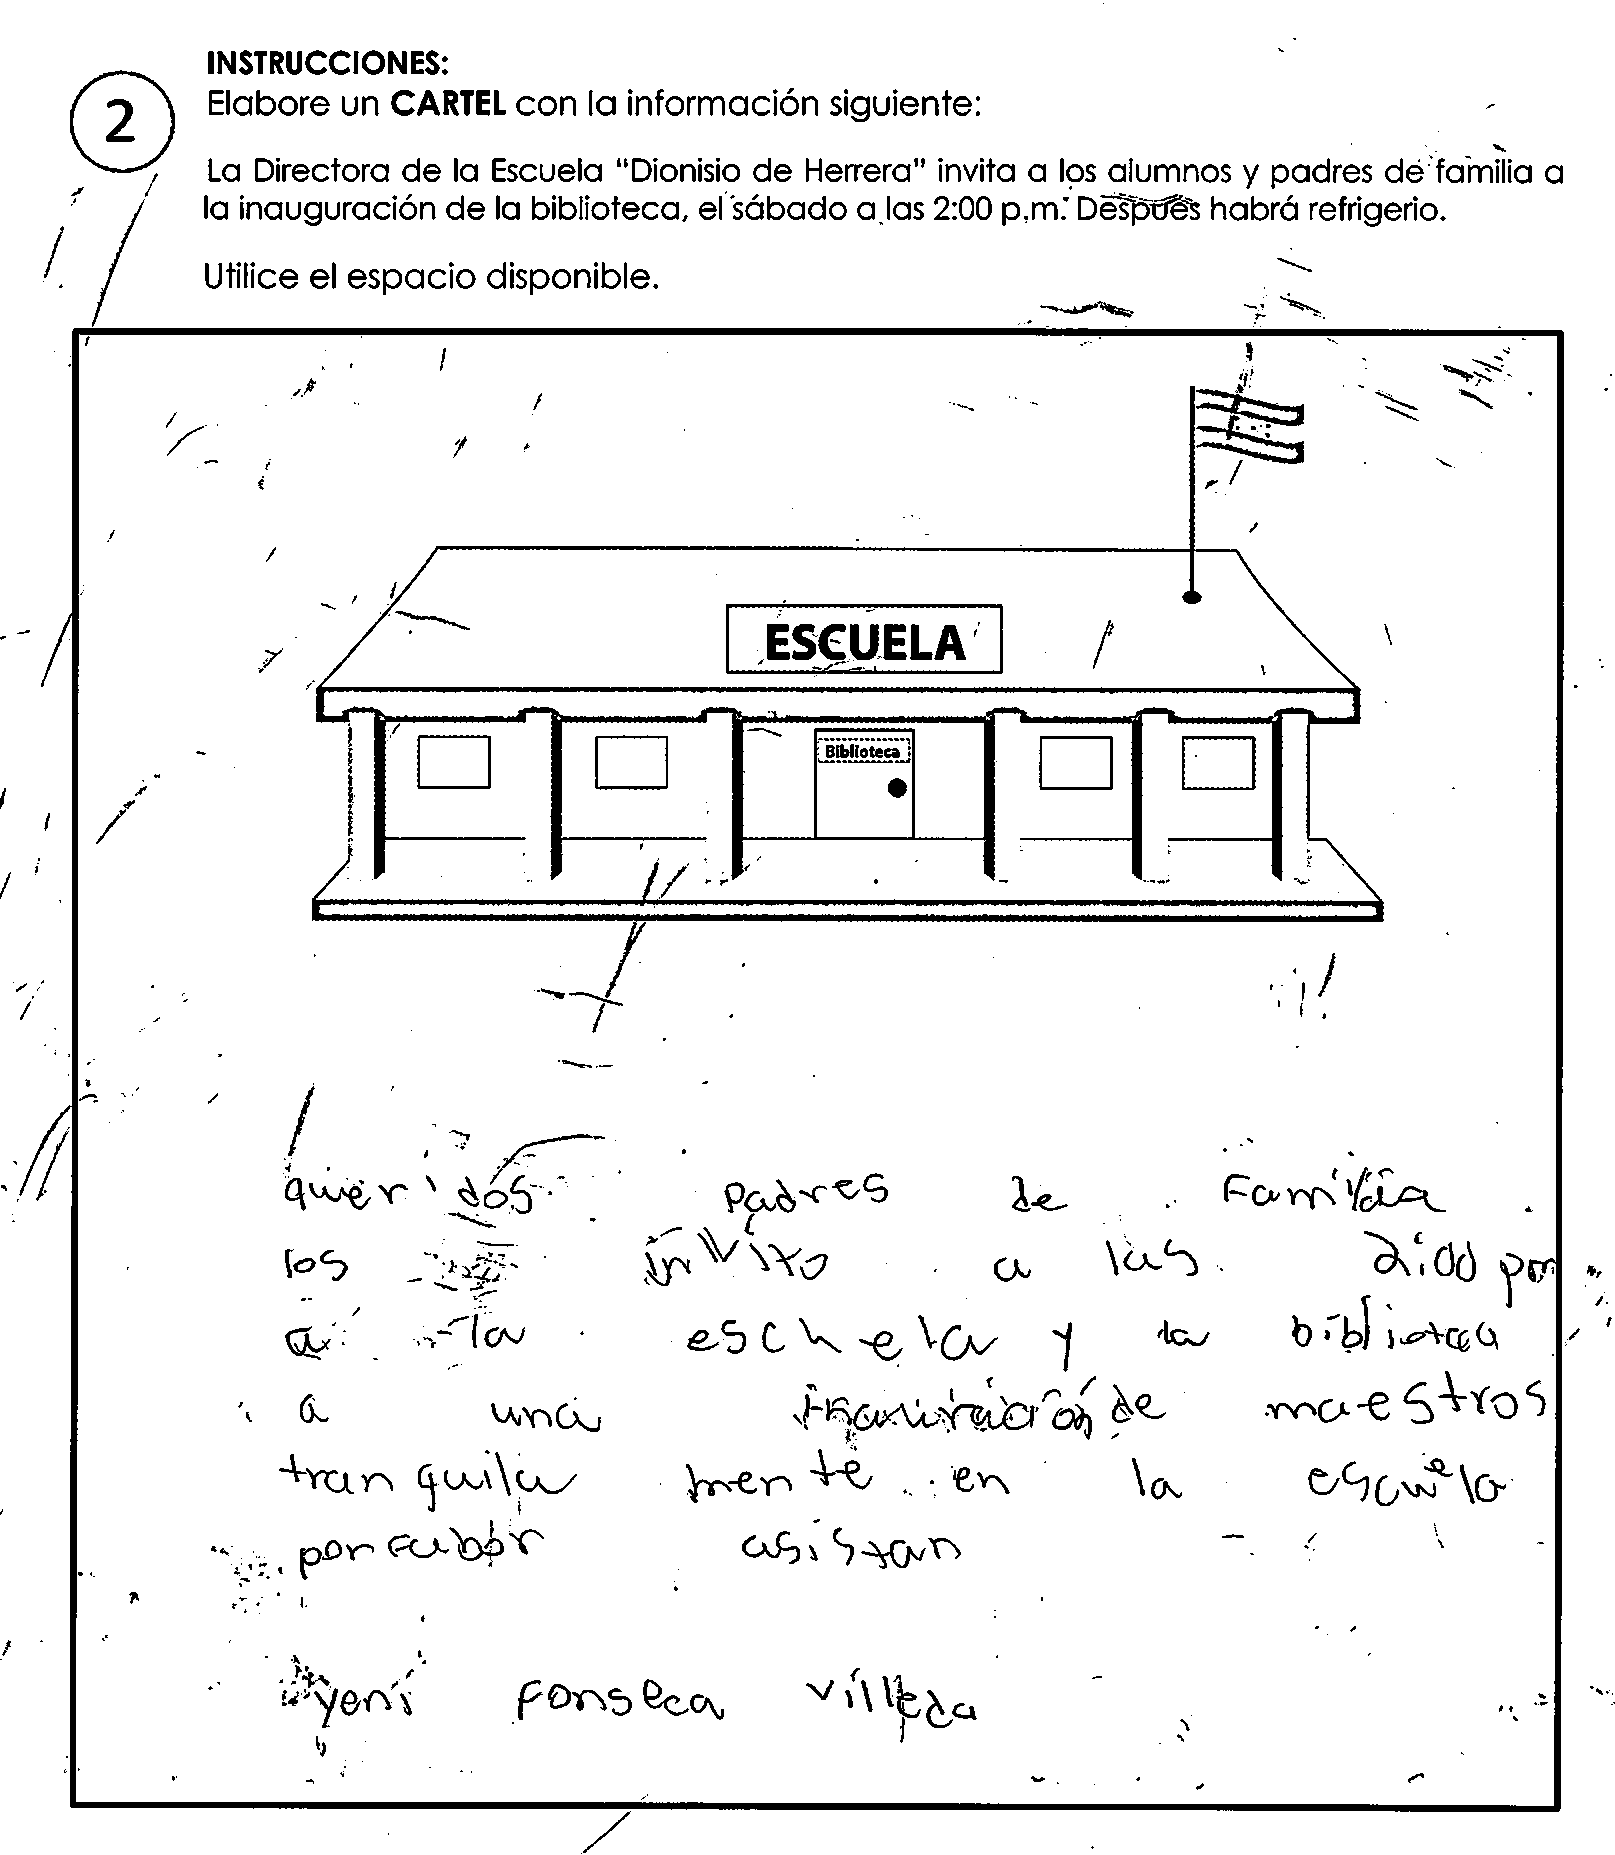 INSTRUCCIONES:
2
Elabore un CARTEL con la información siguiente:
La Directora de la Escuela "Dionisio de Herrera" invita a los alumnos y padres de familia a
la inauguración de la biblioteca, el sábado a las 2:00 p.m. Después habrá refrigerio.
Utilice el espacio disponible.
ESCUELA
Biblioteca
queridos padres de Familia
los invito a las 2:00 pm
a la eschela y la biblioteca
a una de maestros
tranquila mente en la escuela
porfabor asistan
yeni Fonseca villeda